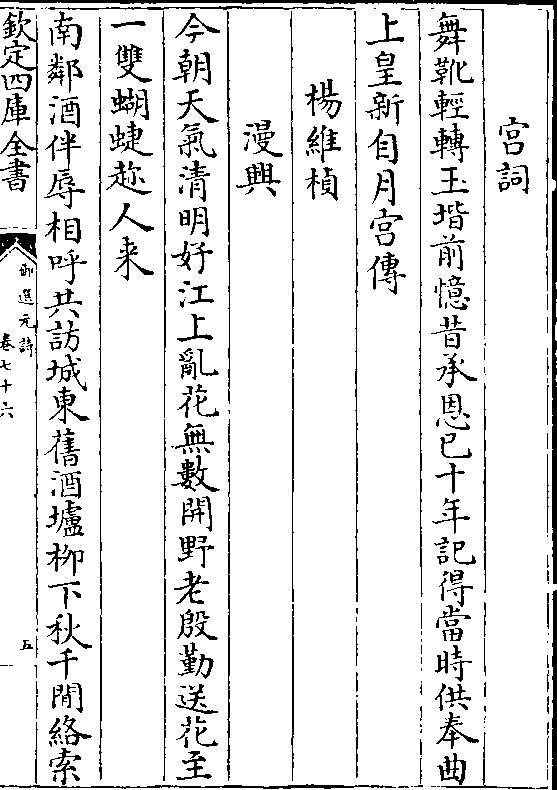 宫詞
舞靴輕轉玉堦前憶昔承恩已十年記得當時供奉曲
上皇新自月宫傳
楊維楨
漫興
今朝天氣清明好江上亂花無數開野老殷勤送花至
一雙蝴蝶趂人来
南鄰酒伴辱相呼共訪城東舊酒壚柳下秋千閒絡索
欽定四庫全書
御選元詩
卷七十六
五